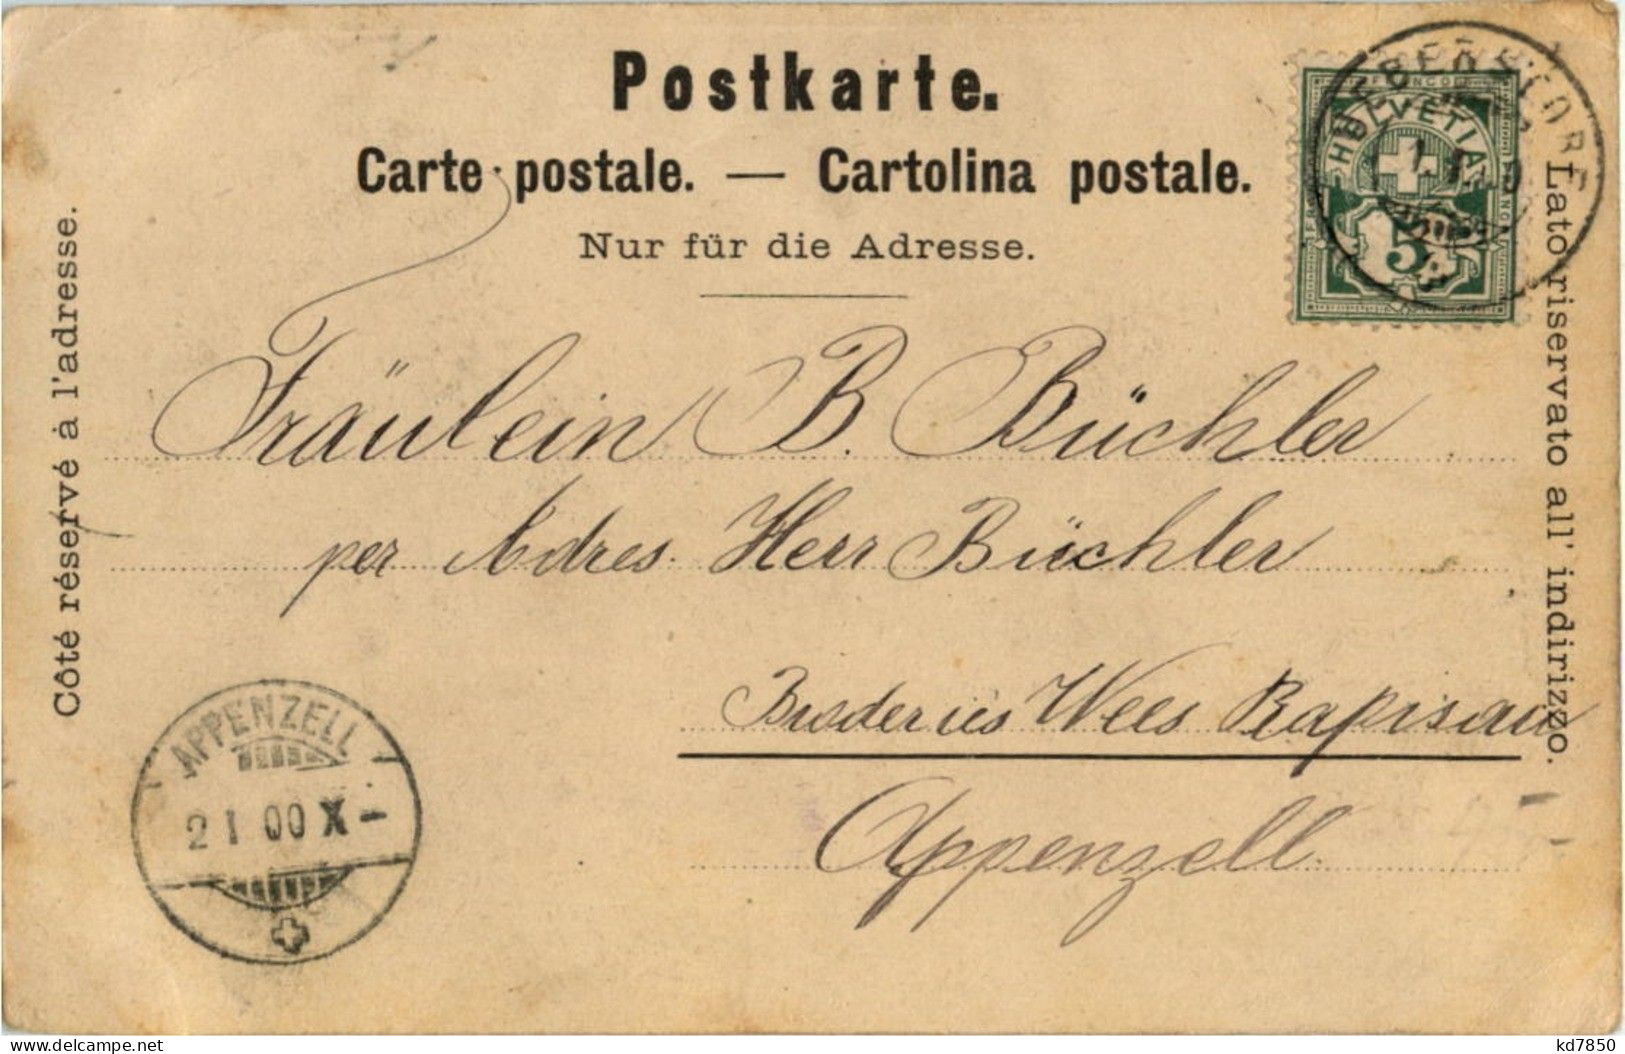 Postkarte.
Carte postale. — Cartolina postale.
Nur für die Adresse.
Côté réservé à l'adresse.
Lato riservato all' indirizzo.
FRANCO
HELVETIA
5
Fräulein B. Büchler
per Adres. Herr Büchler
Broderies Wees
Appenzell
APPENZELL
2 I 00 X -
delcampe.net
kd7850